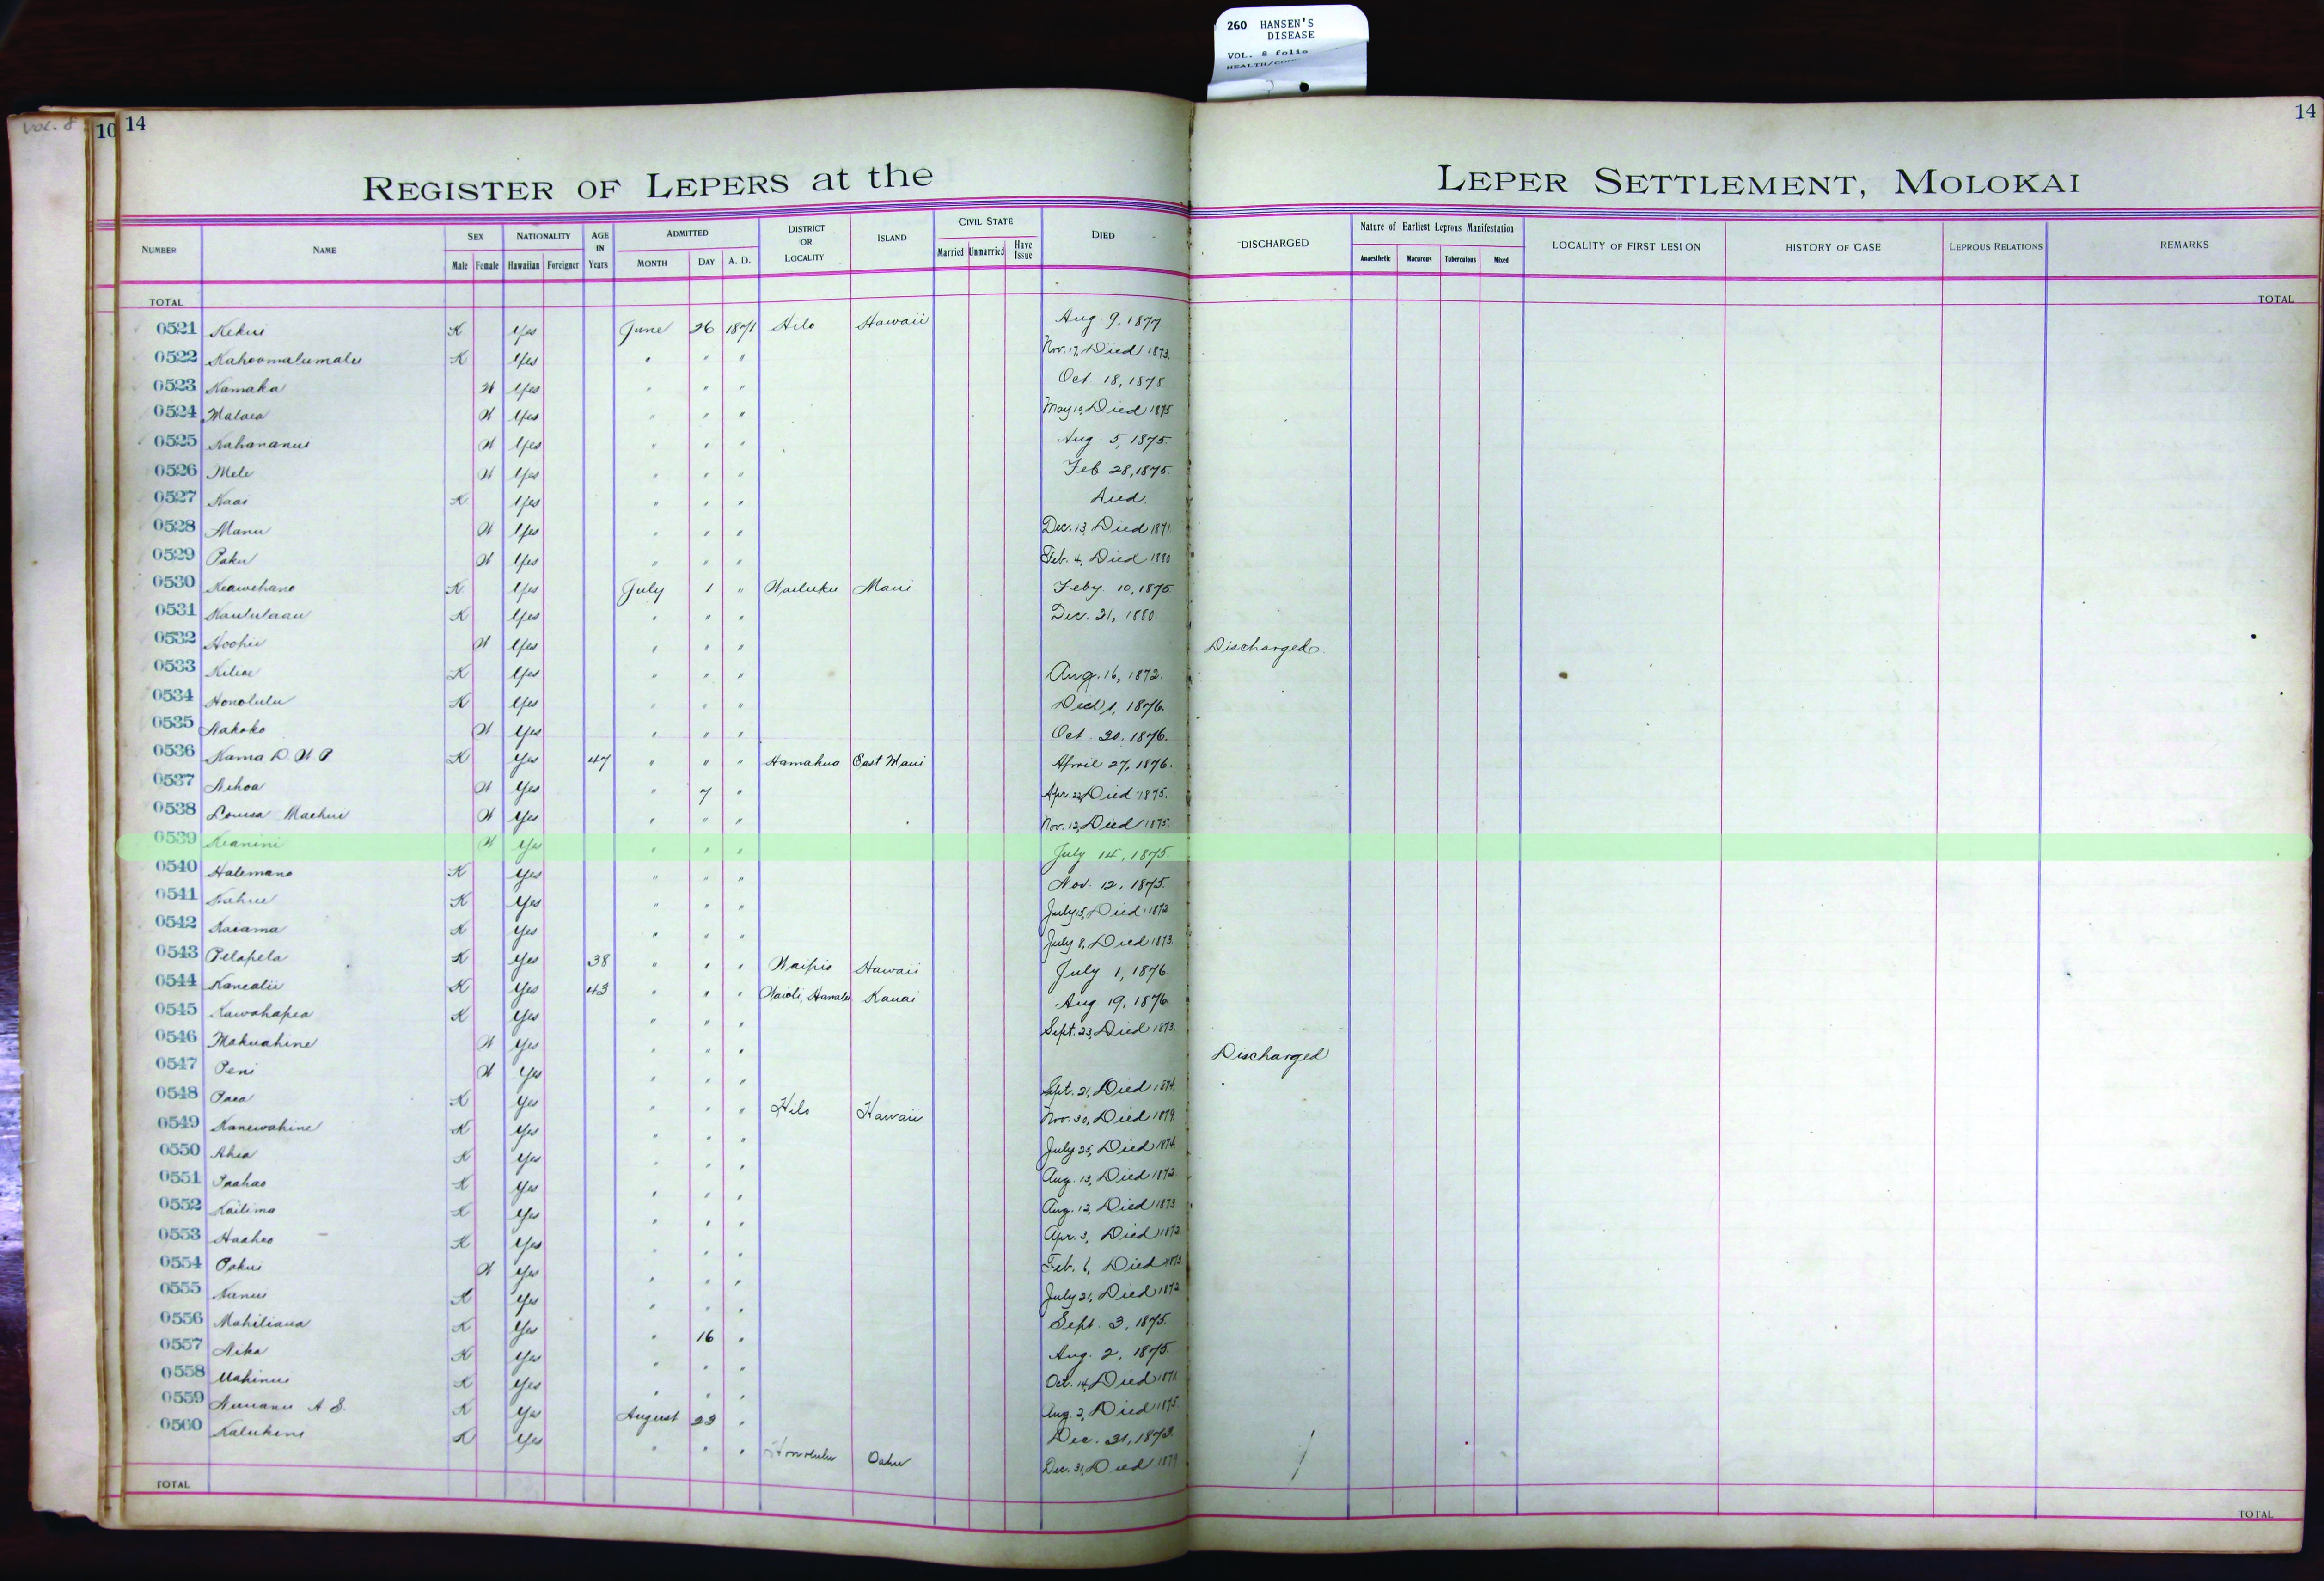 260 HANSEN'S
DISEASE
VOL. 8 folio
VOL. 8
10 14
14
REGISTER OF LEPERS at the LEPER SETTLEMENT, MOLOKAI
NUMBER NAME SEX NATIONALITY AGE IN Years ADMITTED DISTRICT OR LOCALITY ISLAND CIVIL STATE DIED DISCHARGED Nature of Earliest Leprous Manifestation LOCALITY OF FIRST LESION HISTORY OF CASE LEPROUS RELATIONS REMARKS
Male Female Hawaiian Foreigner MONTH DAY A. D. Married Unmarried Have Issue Anaesthetic Macurous Tuberculous Mixed
TOTAL TOTAL
0521 Kekui K Yes June 26 1871 Hilo Hawaii Aug 9, 1877
0522 Kahoomalumalu K Yes " " " Nov. 17, Died 1873.
0523 Kamaka W Yes " " " Oct 18, 1875
0524 Malaea W Yes " " " May 10, Died 1875
0525 Kahananui W Yes " " " Aug. 5, 1875.
0526 Mele W Yes " " " Feb 28, 1875.
0527 Kaai K Yes " " " Died.
0528 Manu W Yes " " " Dec. 13, Died 1871
0529 Paku W Yes " " " Feb. 4, Died 1880
0530 Keawehano K Yes July 1 " Wailuku Maui Feby 10, 1875
0531 Kaululaau K Yes " " " Dec. 21, 1880.
0532 Hoohii W Yes " " " Discharged.
0533 Kiliae K Yes " " " Aug. 16, 1872.
0534 Honolulu K Yes " " " Dec 1, 1876.
0535 Nakoko W Yes " " " Oct. 20, 1876.
0536 Kama D. W P K Yes 47 " " " Hamakua East Maui April 27, 1876.
0537 Nihoa W Yes " 7 " Apr. 22, Died 1875.
0538 Louisa Maehui W Yes " " " Nov. 12, Died 1875.
0539 Keanini W Yes " " " July 14, 1875.
0540 Halemano K Yes " " " Nov. 12, 1875.
0541 Kahue K Yes " " " July 15, Died 1872
0542 Kaiama K Yes " " " July 8, Died 1873.
0543 Pelapela K Yes 38 " " " Waipio Hawaii July 1, 1876
0544 Kanealii K Yes 43 " " " Waioli, Hanalei Kauai Aug 19, 1876
0545 Kawahapea K Yes " " " Sept. 23, Died 1873.
0546 Makuahine W Yes " " " Discharged
0547 Peni W Yes " " " Sept. 21, Died 1874.
0548 Paea K Yes " " " Hilo Hawaii Nov. 30, Died 1879.
0549 Kanewahine K Yes " " " July 25, Died 1874.
0550 Ahia K Yes " " " Aug. 13, Died 1872.
0551 Paahao K Yes " " " Aug. 12, Died 1873
0552 Kailima K Yes " " " Apr. 3, Died 1872
0553 Haaheo K Yes " " " Feb. 6, Died 1873
0554 Pakui W Yes " " " July 21, Died 1872
0555 Nanui K Yes " " " Sept. 3, 1875.
0556 Mahiliaua K Yes " 16 " Aug. 2, 1875.
0557 Nika K Yes " " " Oct. 14, Died 1871
0558 Mahinui K Yes " " " Aug. 2, Died 1875.
0559 Nuuanu A S. K Yes August 23 " Dec. 31, 1873.
0560 Kalukini K Yes " " " Honolulu Oahu Dec. 31, Died 1879
TOTAL TOTAL